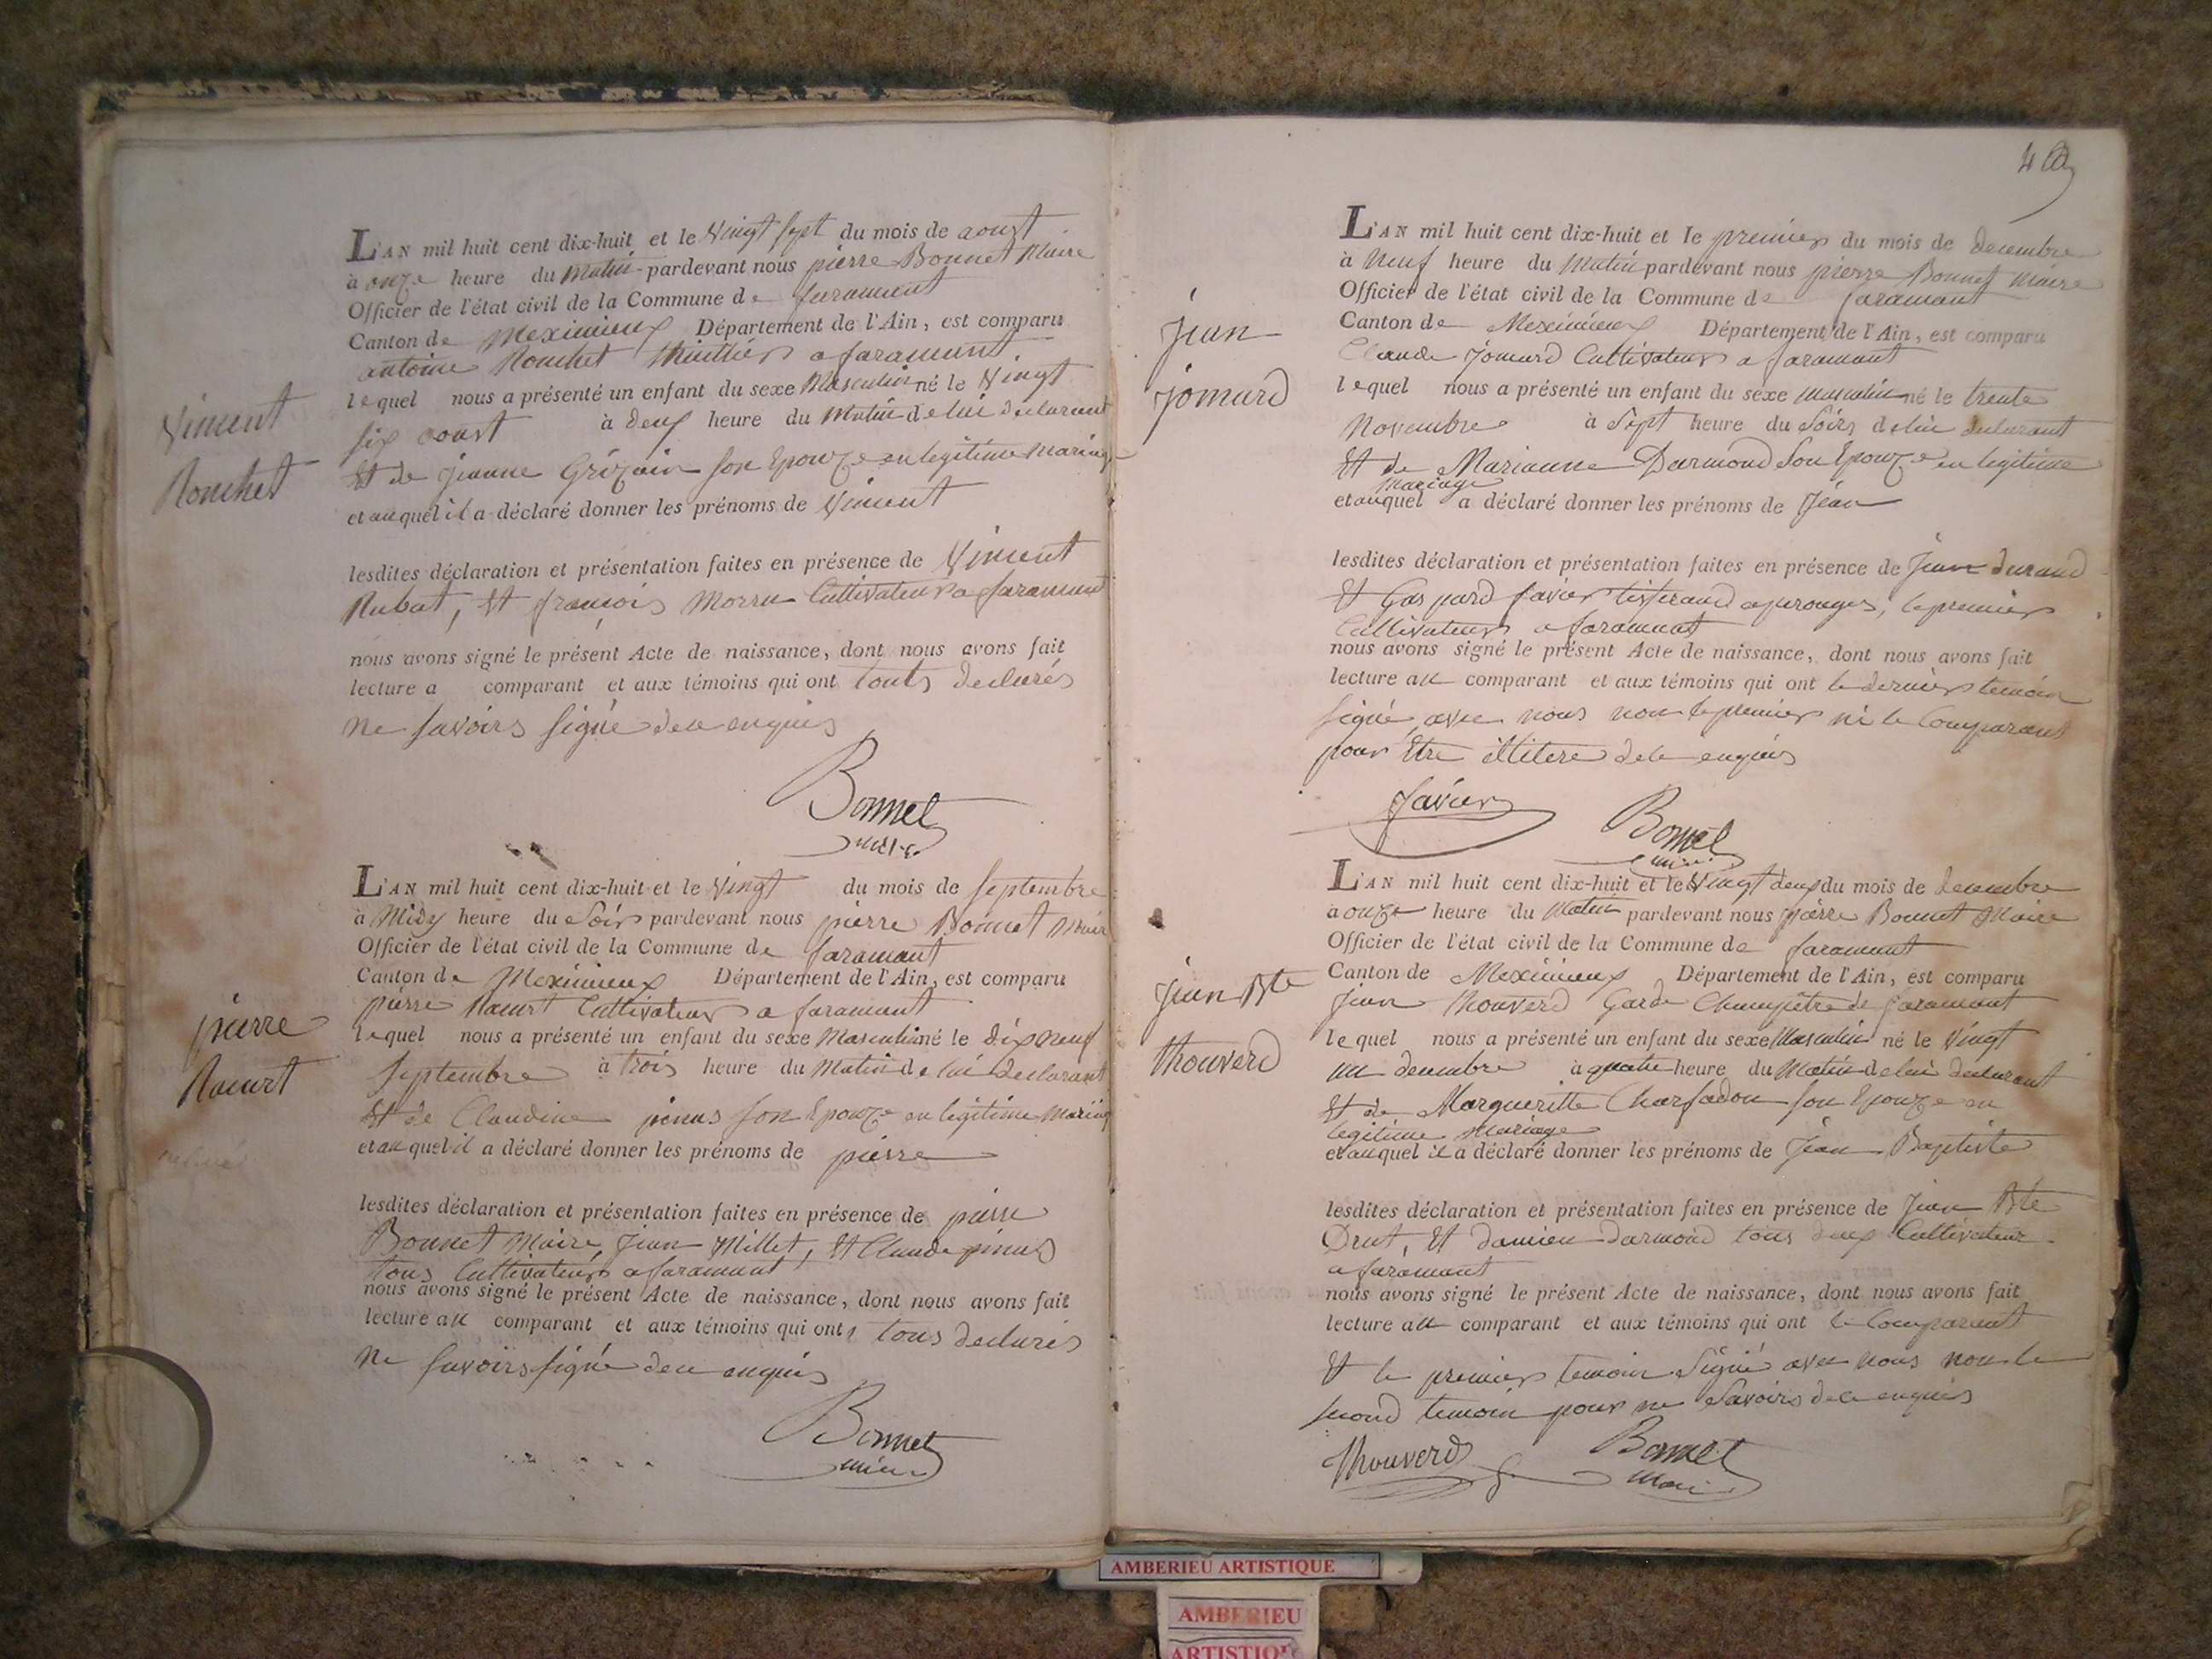 L'AN mil huit cent dix-huit et le vingt sept du mois de aoust
à onze heure du matin pardevant nous pierre Bonnet Maire
Officier de l'état civil de la Commune de faramant
Canton de Meximieux Département de l'Ain, est comparu
antoine Ronchet a faramant
lequel nous a présenté un enfant du sexe Masculin né le vingt
six aoust à deux heure du Matin de lui declarant
Et de jeanne son Epouze en legitime mariage
et auquel il a déclaré donner les prénoms de Vincent
Vincent
Ronchet
lesdites déclaration et présentation faites en présence de Vincent
Rubat, Et françois Morru Cultivateurs a faramant
nous avons signé le présent Acte de naissance, dont nous avons fait
lecture a comparant et aux témoins qui ont touts declarés
ne savoirs signé de ce enquis
Bonnet
maire
L'AN mil huit cent dix-huit et le vingt du mois de septembre
à Midy heure du Soir pardevant nous pierre Bonnet Maire
Officier de l'état civil de la Commune de faramant
Canton de Meximieux Département de l'Ain, est comparu
pierre Cultivateur a faramant
lequel nous a présenté un enfant du sexe Masculin né le dix neuf
septembre à trois heure du Matin de lui declarant
Et de Claudine pinus son Epouze en legitime Mariage
et auquel il a déclaré donner les prénoms de pierre
pierre
lesdites déclaration et présentation faites en présence de pierre
Bonnet Maire, Jean Millet, Et Claude pinus
tous Cultivateurs a faramant
nous avons signé le présent Acte de naissance, dont nous avons fait
lecture au comparant et aux témoins qui ont tous declarés
ne savoirs signé de ce enquis
Bonnet
maire
L'AN mil huit cent dix-huit et le premier du mois de decembre
à Neuf heure du Matin pardevant nous pierre Bonnet Maire
Officier de l'état civil de la Commune de faramant
Canton de Meximieux Département de l'Ain, est comparu
Claude jomard Cultivateur a faramant
lequel nous a présenté un enfant du sexe masculin né le trente
Novembre à Sept heure du Soir de lui declarant
Et de Marianne Darmond Son Epouze en legitime
mariage
et auquel a déclaré donner les prénoms de Jean
Jean
jomard
lesdites déclaration et présentation faites en présence de Jean durand
Et Gaspard favier tisserand a perouges, le premier
Cultivateur a faramant
nous avons signé le présent Acte de naissance, dont nous avons fait
lecture au comparant et aux témoins qui ont le dernier temoin
signé avec nous non le premier ni le Comparant
pour Etre illitere de ce enquis
favier
Bonnet
maire
L'AN mil huit cent dix-huit et le vingt deux du mois de decembre
à onze heure du Matin pardevant nous pierre Bonnet Maire
Officier de l'état civil de la Commune de faramant
Canton de Meximieux Département de l'Ain, est comparu
Jean thouverd Garde Champêtre de faramant
lequel nous a présenté un enfant du sexe Masculin né le vingt
un decembre à quatre heure du Matin de lui declarant
Et de Margueritte Charfadon son Epouze en
legitime mariage
et auquel il a déclaré donner les prénoms de Jean Baptiste
jean Bte
thouverd
lesdites déclaration et présentation faites en présence de Jean Bte
Drut, Et damien darmond tous deux Cultivateur
a faramant
nous avons signé le présent Acte de naissance, dont nous avons fait
lecture au comparant et aux témoins qui ont le Comparant
Et le premier temoin Signé avec nous non le
second temoin pour ne Savoirs de ce enquis
thouverd
Bonnet
maire
AMBERIEU ARTISTIQUE
AMBERIEU
ARTISTIQUE